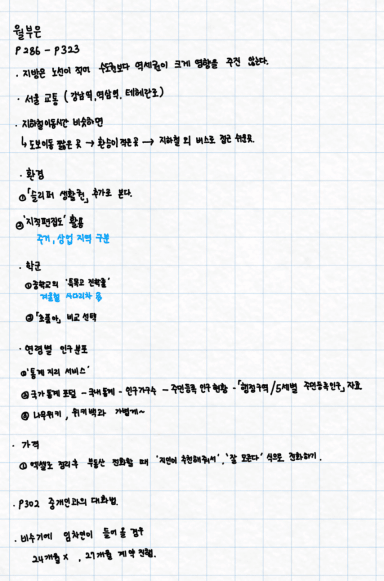 월부은
P286 - P323
· 지방은 노선이 적어 수도권보다 역세권이 크게 영향을 주진 않는다.
· 서울 교통 (강남역, 역삼역, 테헤란로)
· 지하철이동시간 비슷하면
↳ 도보이동 짧은 곳 → 환승이 적은 곳 → 지하철 외 버스로 접근 쉬운곳.
· 환경
① 「슬리퍼 생활권」 추가로 본다.
② '지적편집도' 활용
주거, 상업 지역 구분
· 학군
① 중학교의 '특목고 진학률'
② 「초품아」 비교 선택
· 연령별 인구분포
① '통계 지리 서비스'
② 국가통계 포털 - 국내통계 - 인구가구수 - 주민등록 인구현황 - 「행정구역/5세별 주민등록인구」 자료
③ 나무위키, 위키백과 가볍게~
· 가격
① 엑셀로 정리후 부동산 전화할 때 '지인이 추천해줘서', '잘 모른다' 식으로 전화하기.
· P302 중개인과의 대화법.
· 비수기에 임차인이 들어올 경우
24개월 X , 27개월 계약 진행.